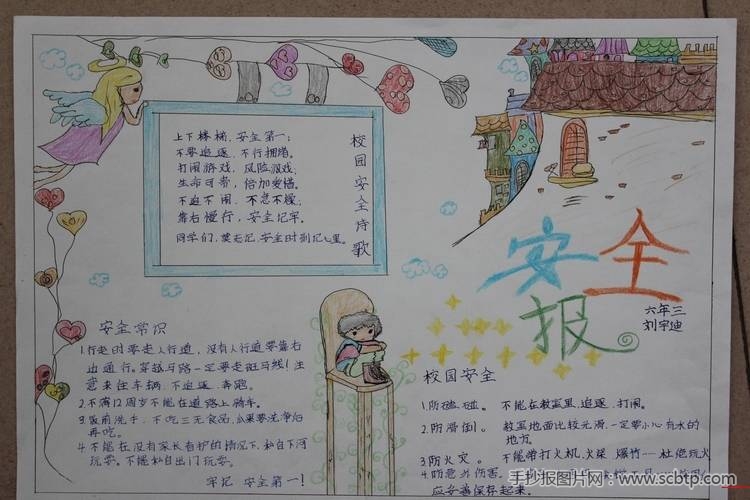 校园安全诗歌
上下楼梯,安全第一;
不要追逐、不行拥挤。
打闹游戏,风险游戏;
生命可贵,倍加爱惜。
不追不闹、不急不躁;
靠右慢行,安全记牢。
同学们,莫忘记,安全时刻记心里。
安全报
六年三
刘宇迪
安全常识
1.行走时要走人行道,没有人行道要靠右
边通行。穿越马路一定要走斑马线!注
意来往车辆,不追逐、奔跑。
2.不满12周岁不能在道路上骑车。
3.饭前洗手,不吃三无食品,瓜果要洗净后
再吃。
4.不能在没有家长看护的情况下,私自下河
玩耍。不能私自出门玩耍。
牢记 安全第一!
校园安全
1.防磕碰。 不能在教室里,追逐、打闹。
2.防滑倒。 教室地面比较光滑,一定要小心有水的
地方
3.防火灾。 不能带打火机、火柴 爆竹……杜绝玩火
4.防意外伤害。
应妥善保存起来。
手抄报图片网:www.scbtp.com